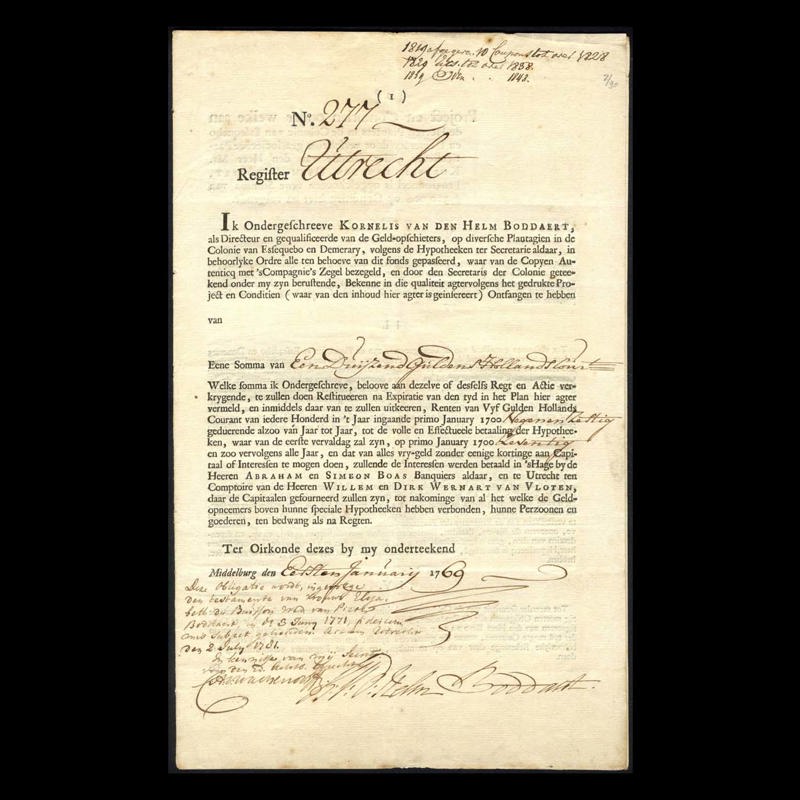 1828
1838.
1848.
(1)
No. 277
Regiſter Uttrecht
Ik Ondergeſchreeve KORNELIS VAN DEN HELM BODDAERT,
als Directeur en gequalificeerde van de Geld-opſchieters, op diverſche Plantagien in de
Colonie van Eſſequebo en Demerary, volgens de Hypotheeken ter Secretarie aldaar, in
behoorlyke Ordre alle ten behoeve van dit fonds gepaſſeerd, waar van de Copyen Au-
tenticq met 'sCompagnie's Zegel bezegeld, en door den Secretaris der Colonie getee-
kend onder my zyn beruſtende, Bekenne in die qualiteit agtervolgens het gedrukte Pro-
ject en Conditien (waar van den inhoud hier agter is geinſereert) Ontfangen te hebben
van
Eene Somma van Een Duijzend Guldens Hollands Court
Welke ſomma ik Ondergeſchreve, beloove aan dezelve of desſelfs Regt en Actie ver-
krygende, te zullen doen Reſtitueeren na Expiratie van den tyd in het Plan hier agter
vermeld, en inmiddels daar van te zullen uitkeeren, Renten van Vyf Gulden Hollands
Courant van iedere Honderd in 't Jaar ingaande primo January 1700 Negenenzestig
geduerende alzoo van Jaar tot Jaar, tot de volle en Effectueele betaaling der Hypothee-
ken, waar van de eerſte vervaldag zal zyn, op primo January 1700 Zeventig
en zoo vervolgens alle Jaar, en dat van alles vry-geld zonder eenige kortinge aan Capi-
taal of Intereſſen te mogen doen, zullende de Intereſſen werden betaald in 'sHage by de
Heeren ABRAHAM en SIMEON BOAS Banquiers aldaar, en te Utrecht ten
Comptoire van de Heeren WILLEM en DIRK WERNART VAN VLOTEN,
daar de Capitaalen gefourneerd zullen zyn, tot nakominge van al het welke de Geld-
opneemers boven hunne ſpeciale Hypotheeken hebben verbonden, hunne Perzoonen en
goederen, ten bedwang als na Regten.
Ter Oirkonde dezes by my onderteekend
Middelburg den Eersten January 1769
Deze Obligatie wordt, ingevolge
den testamente van vrouwe Elisa-
beth du Buisson wed van Pieter
Boddaert, in dt 3 Juny 1771
den 2 July 1781.
Helm Boddaert.